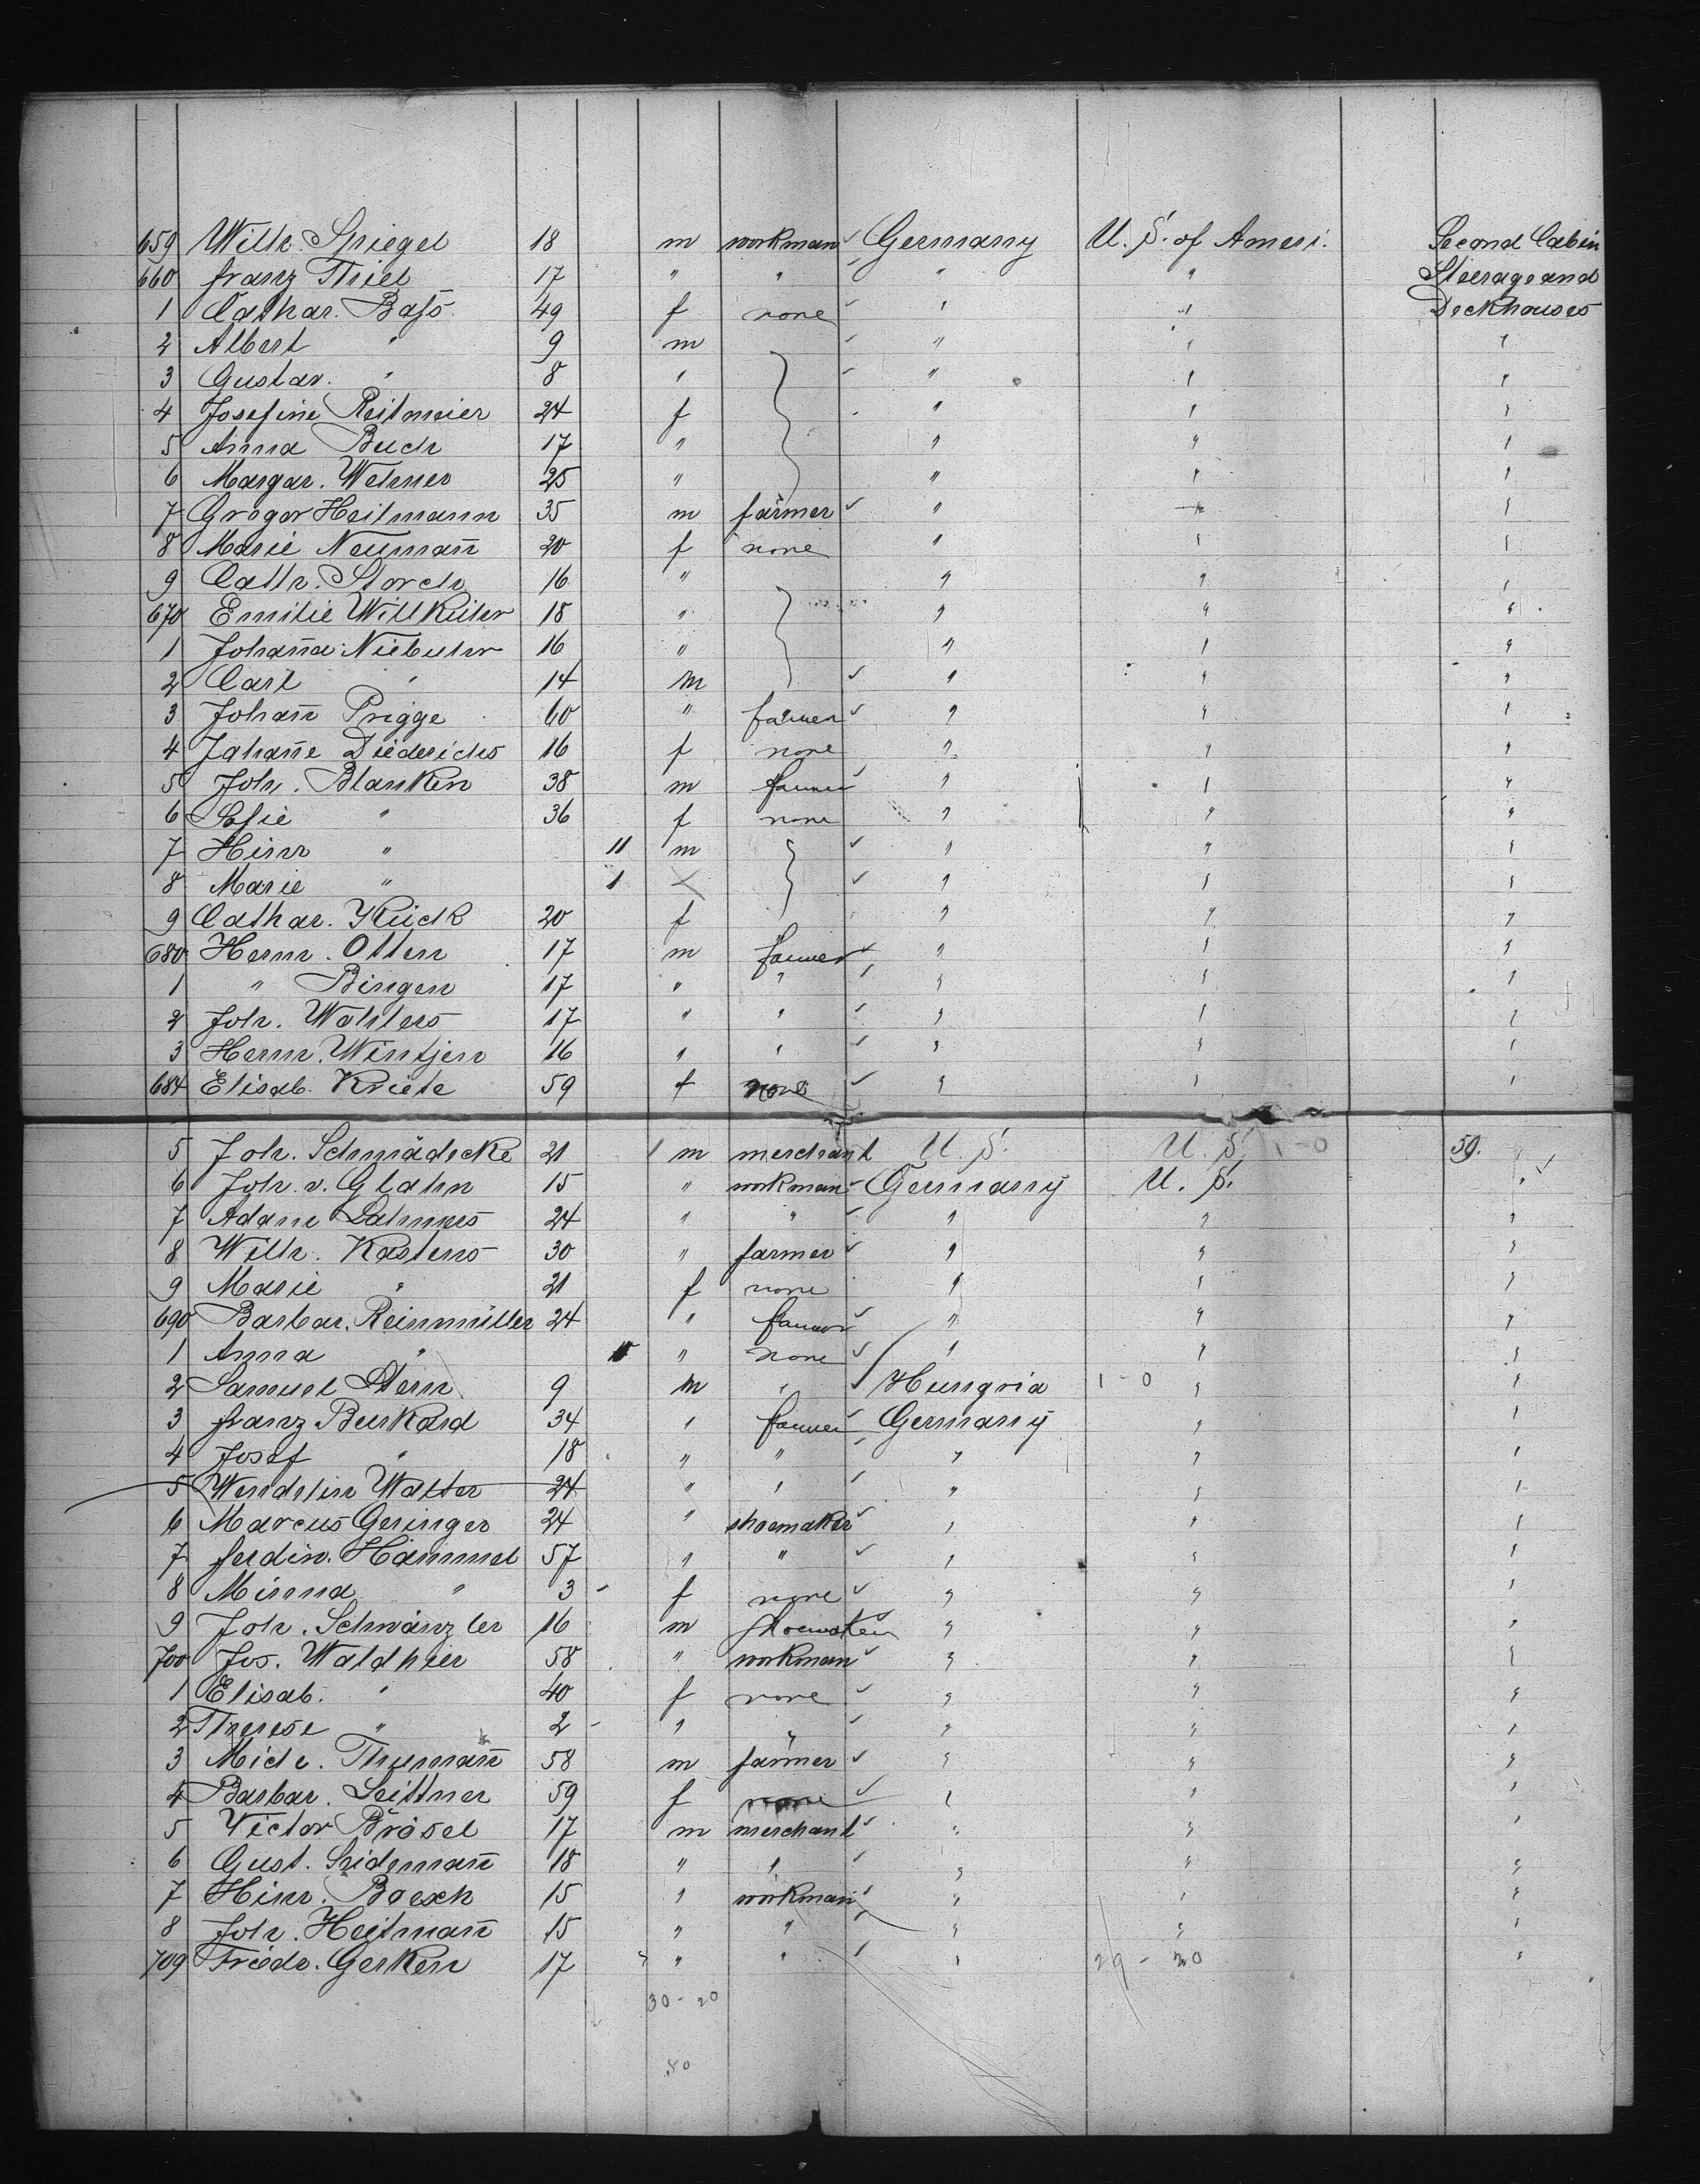 659 Wilh. Spiegel 18 m workman Germany U. S. of Ameri. Second Cabin
660 Franz Thiel 17 " " " " Steerage and
1 Cathar. Baſs 49 f none " " Deckhouses
2 Albert " 9 m " " "
3 Gustav. " 8 " " " "
4 Josefine Reitmeier 24 f " " "
5 Anna Buch 17 " " " "
6 Margar. Wehner 25 " " " "
7 Gregor Heitmann 35 m farmer " " "
8 Marie Neuman̄ 20 f none " " "
9 Cath. Storch 16 " " " "
670 Emilie Willkühr 18 " " " "
1 Johan̄a Niebuhr 16 " " " "
2 Carl " 14 m " " "
3 Johan̄ Prigge 60 " farmer " " "
4 Johan̄e Diederichs 16 f none " " "
5 Joh. Blanken 38 m farmer " " "
6 Sofie " 36 f none " " "
7 Hinr " 11 m " " "
8 Marie " 1 " " "
9 Cathar. Kück 20 f " " "
680 Herm. Otten 17 m farmer " " "
1 " Bingen 17 " " " " "
2 Joh. Wohlers 17 " " " " "
3 Herm. Wintjen 16 " " " " "
684 Elisab. Kriete 59 f none " " "
5 Joh. Schmädecke 21 1 m merchant U. S. U. S. 1-0 50. "
6 Joh. v. Glahn 15 " workman Germany U. S. "
7 Adam Lahmes 24 " " " " "
8 Wilh. Kastens 30 " farmer " " "
9 Marie " 21 f none " " "
690 Barbar. Reinmüller 24 " farmer " " "
1 Anna " " none " " "
2 Samuel Stern 9 m " Hungria 1-0 " "
3 Franz Burkard 34 " farmer Germany " "
4 Josef " 18 " " " " "
5 Wendelin Walter 24 " " " " "
6 Marcus Geringer 24 " shoemaker " " "
7 Ferdin. Hämmel 57 " " " " "
8 Minna " 3 - f none " " "
9 Joh. Schwänzler 16 m shoemaker " " "
700 Jos. Waldhier 58 " workman " " "
1 Elisab. " 40 f none " " "
2 Therese " 2 - " " " " "
3 Mich. Thuman̄ 58 m farmer " " "
4 Barbar. Leittner 59 f none " " "
5 Victor Brösel 17 m merchant " " "
6 Gust. Seideman̄ 18 " " " " "
7 Hinr. Boesch 15 " workman " " "
8 Joh. Heitman̄ 15 " " " " "
709 Friedr. Gerken 17 " " " 29 - 20 "
30 - 20
50